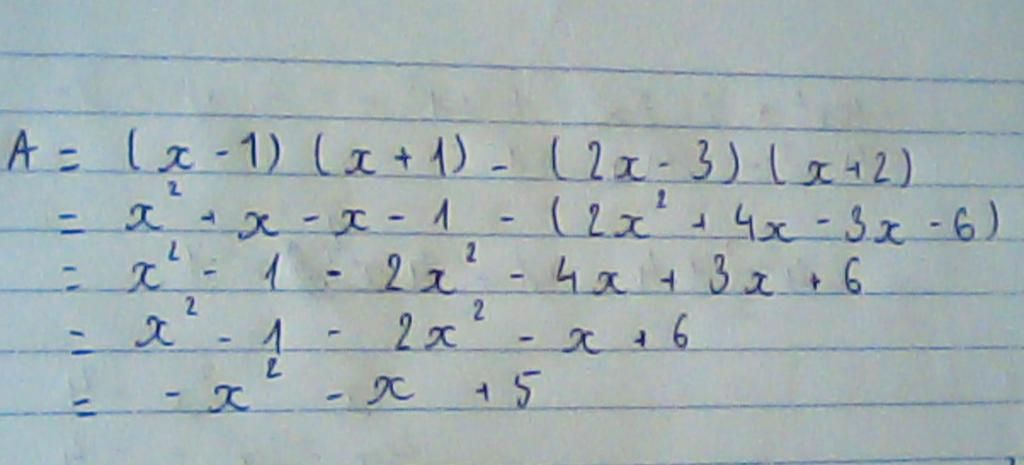 A = (x - 1) (x + 1) - (2x - 3) (x + 2)
= x² + x - x - 1 - (2x² + 4x - 3x - 6)
= x² - 1 - 2x² - 4x + 3x + 6
= x² - 1 - 2x² - x + 6
= - x² - x + 5